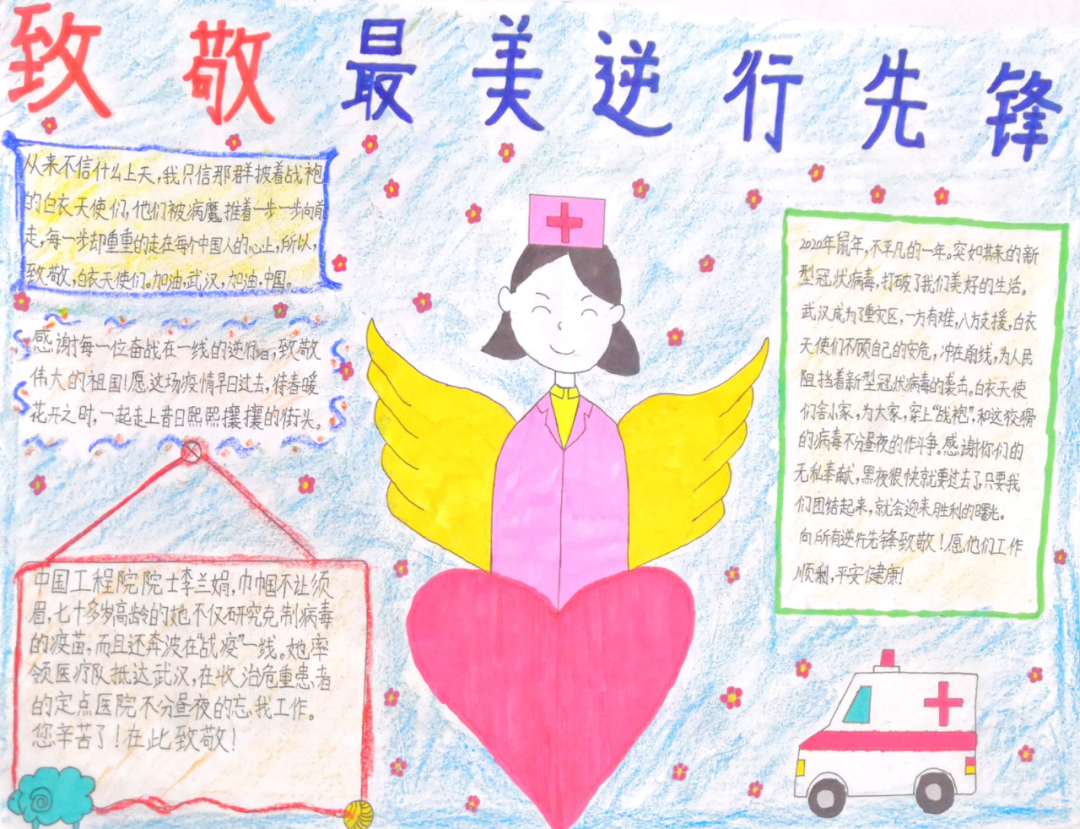 致敬最美逆行先锋
从来不信什么上天,我只信那群披着战袍
的白衣天使们,他们被病魔推着一步一步向前
走,每一步却重重的走在每个中国人的心上,所以,
致敬,白衣天使们。加油,武汉,加油,中国。
感谢每一位奋战在一线的逆行者,致敬
伟大的祖国!愿这场疫情早日过去,待春暖
花开之时,一起走上昔日熙熙攘攘的街头。
中国工程院院士李兰娟,巾帼不让须
眉,七十多岁高龄的她不仅研究克制病毒
的疫苗,而且还奔波在“战疫”一线。她率
领医疗队抵达武汉,在收治危重患者
的定点医院不分昼夜的忘我工作。
您辛苦了!在此致敬!
2020年鼠年,不平凡的一年。突如其来的新
型冠状病毒,打破了我们美好的生活。
武汉成为了重灾区,一方有难,八方支援,白衣
天使们不顾自己的安危,冲在前线,为人民
阻挡着新型冠状病毒的袭击。白衣天使
们舍小家,为大家,穿上“战袍”,和这狡猾
的病毒不分昼夜的作斗争。感谢你们的
无私奉献,黑夜很快就要过去了,只要我
们团结起来,就会迎来胜利的曙光。
向所有逆行先锋致敬!愿他们工作
顺利,平安健康!